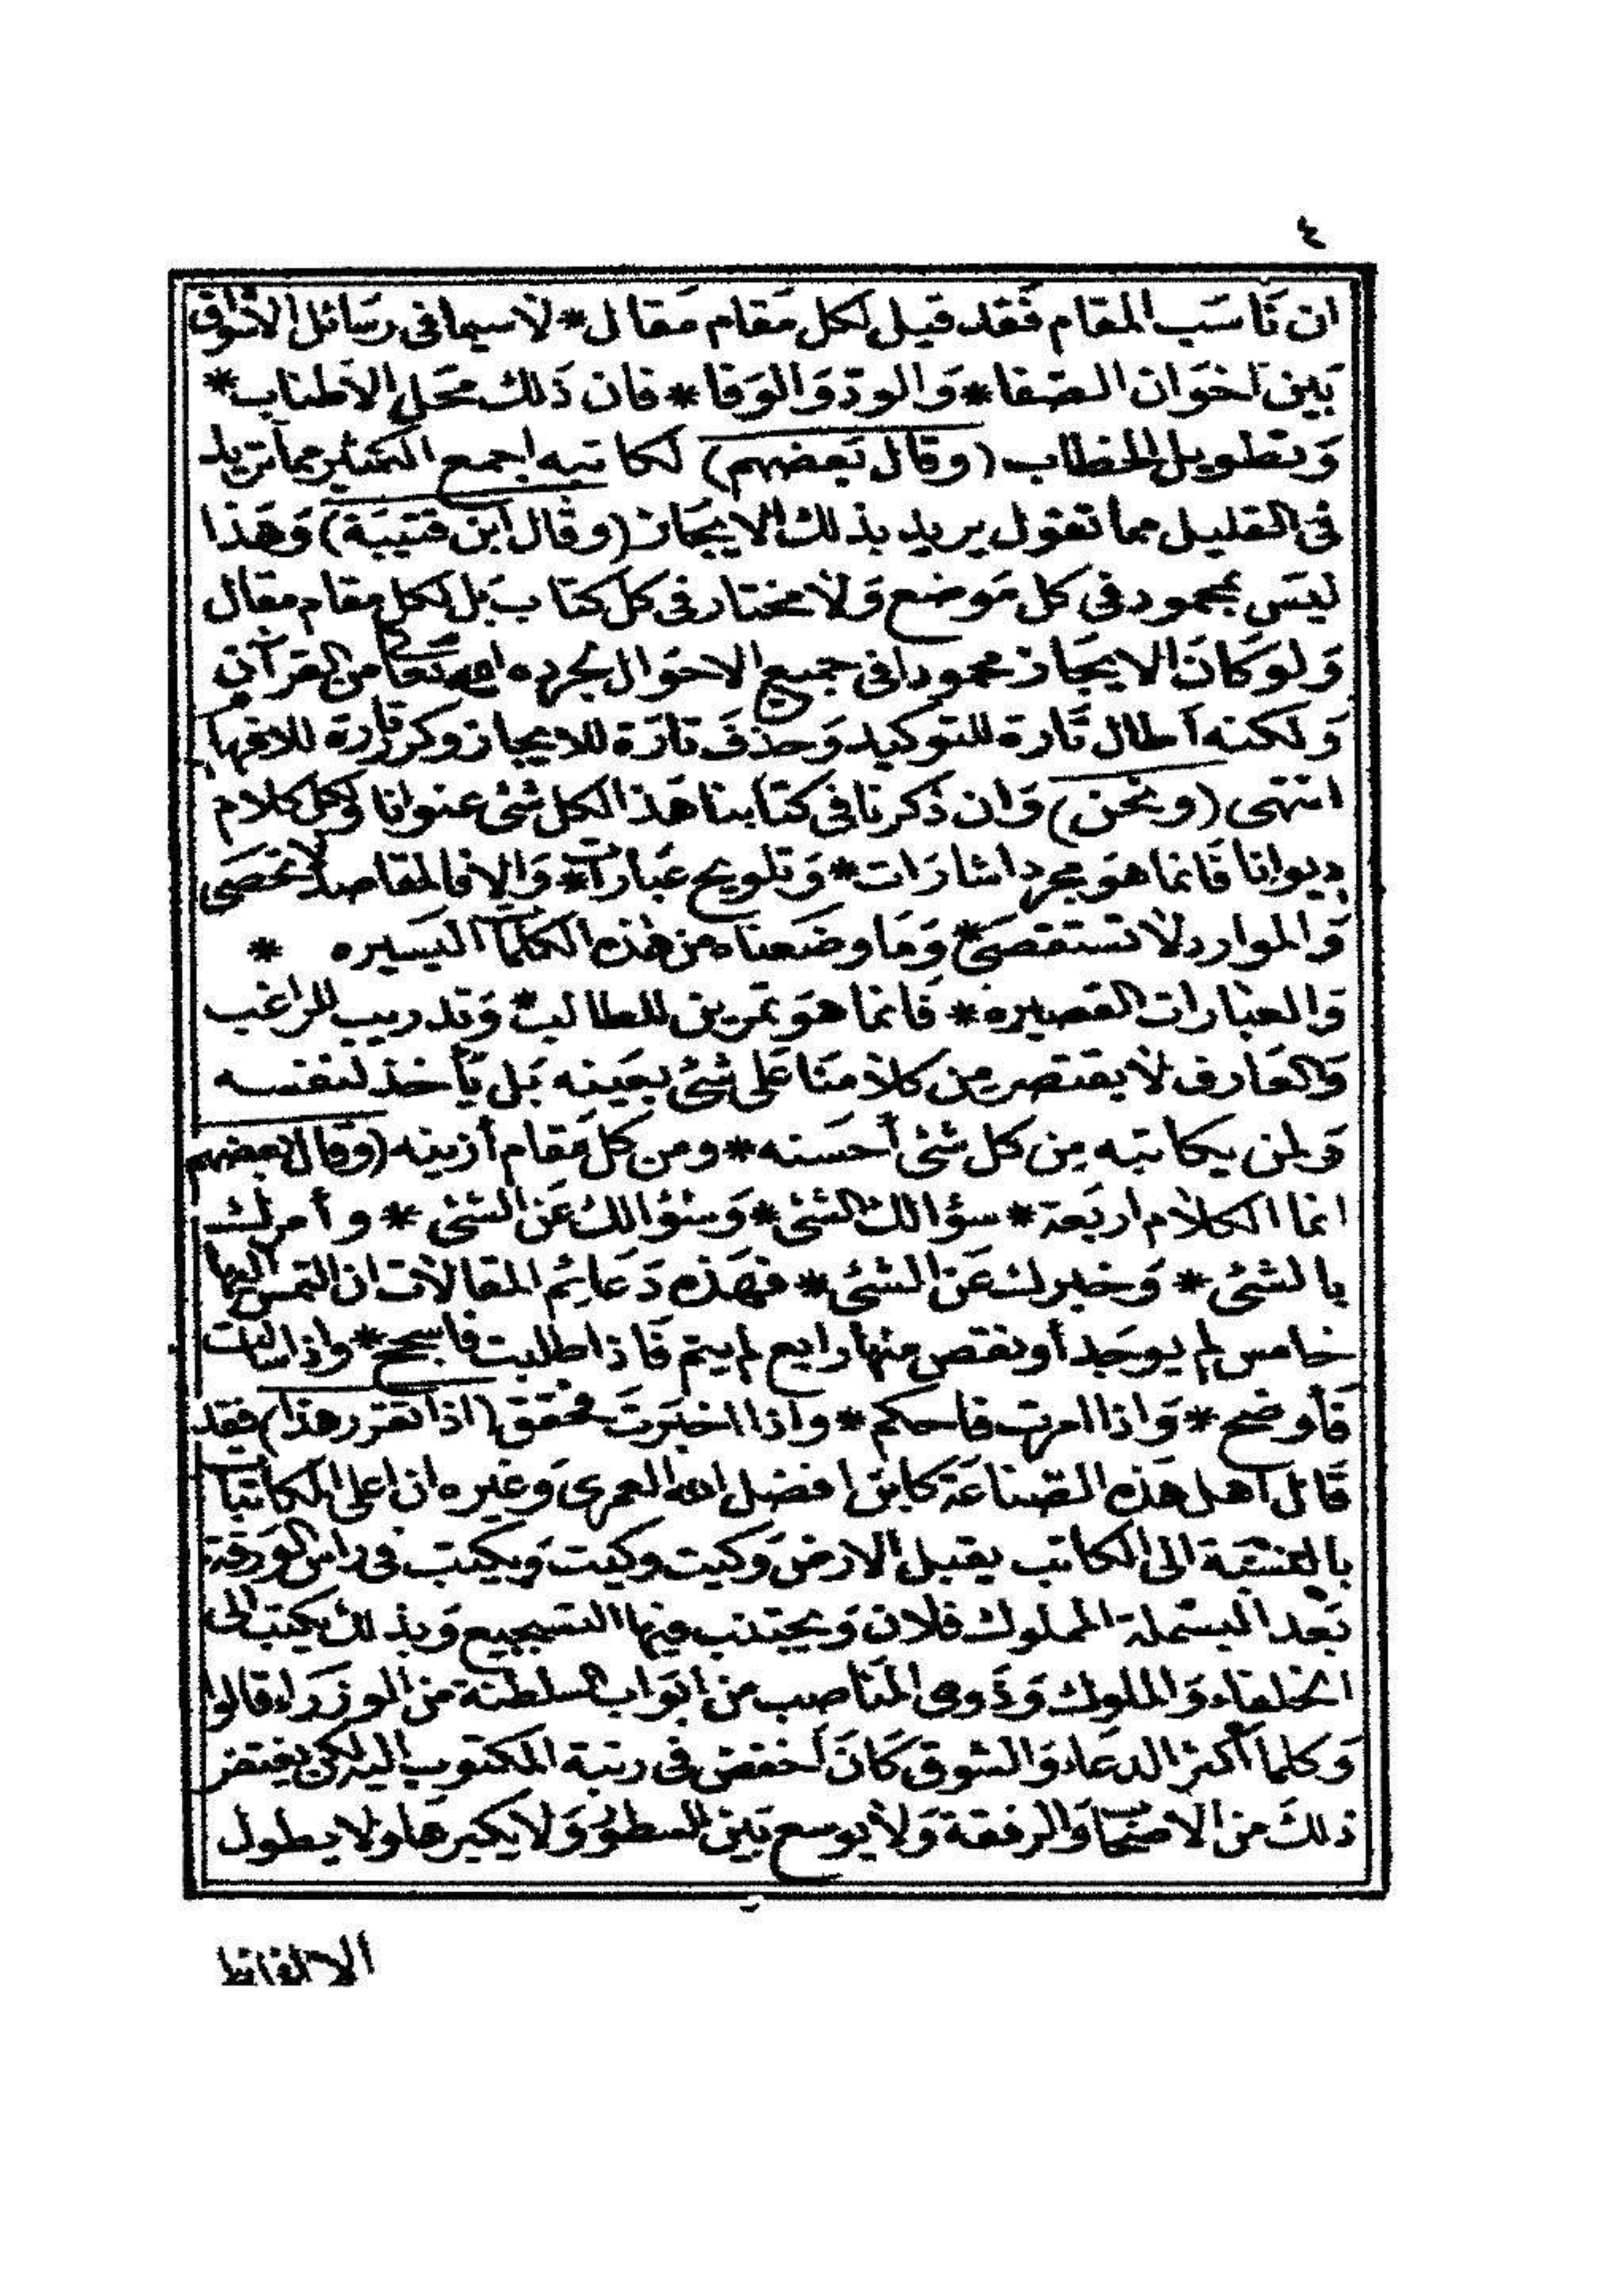 ٤
ان نَاسَب المقام فَقد قيل لكل مَقام مَقال * لاسيما فى رسَائل الاشواق
بَين اخوَان الصّفا * وَالودّ وَالوَفا * فان ذَلك محَل الاطناب *
وَتطويل الخطاب (وقال بَعضهم) لكاتبه اجمع الكثير مما تريد
فى القليل مما تقول يريد بذلك الايجَاز (وقال ابن قتيبَة) وَهَذا
ليسَ بمحمود فى كل مَوضع وَلا مختار فى كل كتاب بَل لكل مقام مقال
وَلو كانَ الايجَاز محمودا فى جميع الاحوَال لجرده الله تعَالى من القرآن
وَلكنه أطال تَارة للتوكيد وَحذفَ تارَة للايجاز وكرر تارة للافهام
انتهى (ونحن) وَان ذكرنا فى كتابنا هَذا لكل شئ عنوانا ولكل كلام
ديوانا فَانما هوَ مجرد اشارَات * وَتلويح عبَارات * وَالا فالمقاصد لا تحصَى
وَالموارد لا تستقصَى * وَمَا وضَعناه من هذه الكلمات اليسَيره *
وَالعبارات القصيره * فَانما هوَ تمرين للطالب * وَتدريب للراغب
وَالعَارف لا يقتصر من كلامنَا عَلى شئ بعَينه بَل يَأخذ لنفسه
وَلمن يكاتبه مِن كل شئ أحسَنه * ومن كل مَقام أزينه (وَقال بعضهم
انما الكلام اربَعة * سؤالك الشئ * وَسؤالك عَن الشئ * وأمرك
بالشئ * وَخبرك عَن الشئ * فهَذه دَعَائِم المقالات ان التمس اليها
خامس لم يوجَد أو نقص منها رابع لم يتم فَاذا طلبت فاسجح * واذا سالت
فَأوضح * وَاذا امرت فاحكم * واذا اخبَرتَ فحقق (اذا تقرر هذا) فقد
قَال أهل هَذه الصّناعَة كابن فضل الله العمرى وَغيره ان اعلى المكاتبات
بالنسبَة الى الكاتب يقبل الارضَ وكيت وكيت وَيكتب فى راس الوَرقة
بَعد البسَملة المملوك فلان وَيجتنب فيها التسجيع وَبذلك يكتب الى
الخلفاء وَالملوك وَذَوى المنَاصب من ابوَاب السلطنة من الوزرَاء قالوا
وَكلما أكثر الدعَاء وَالشوق كانَ أخفض فى رتبة المكتوب اليه لكن يغتفر
ذلكَ من الاصحاب وَالرفقة وَلا يوسع بَين السطور وَلا يكبرهَا ولا يطول
الالفاظ